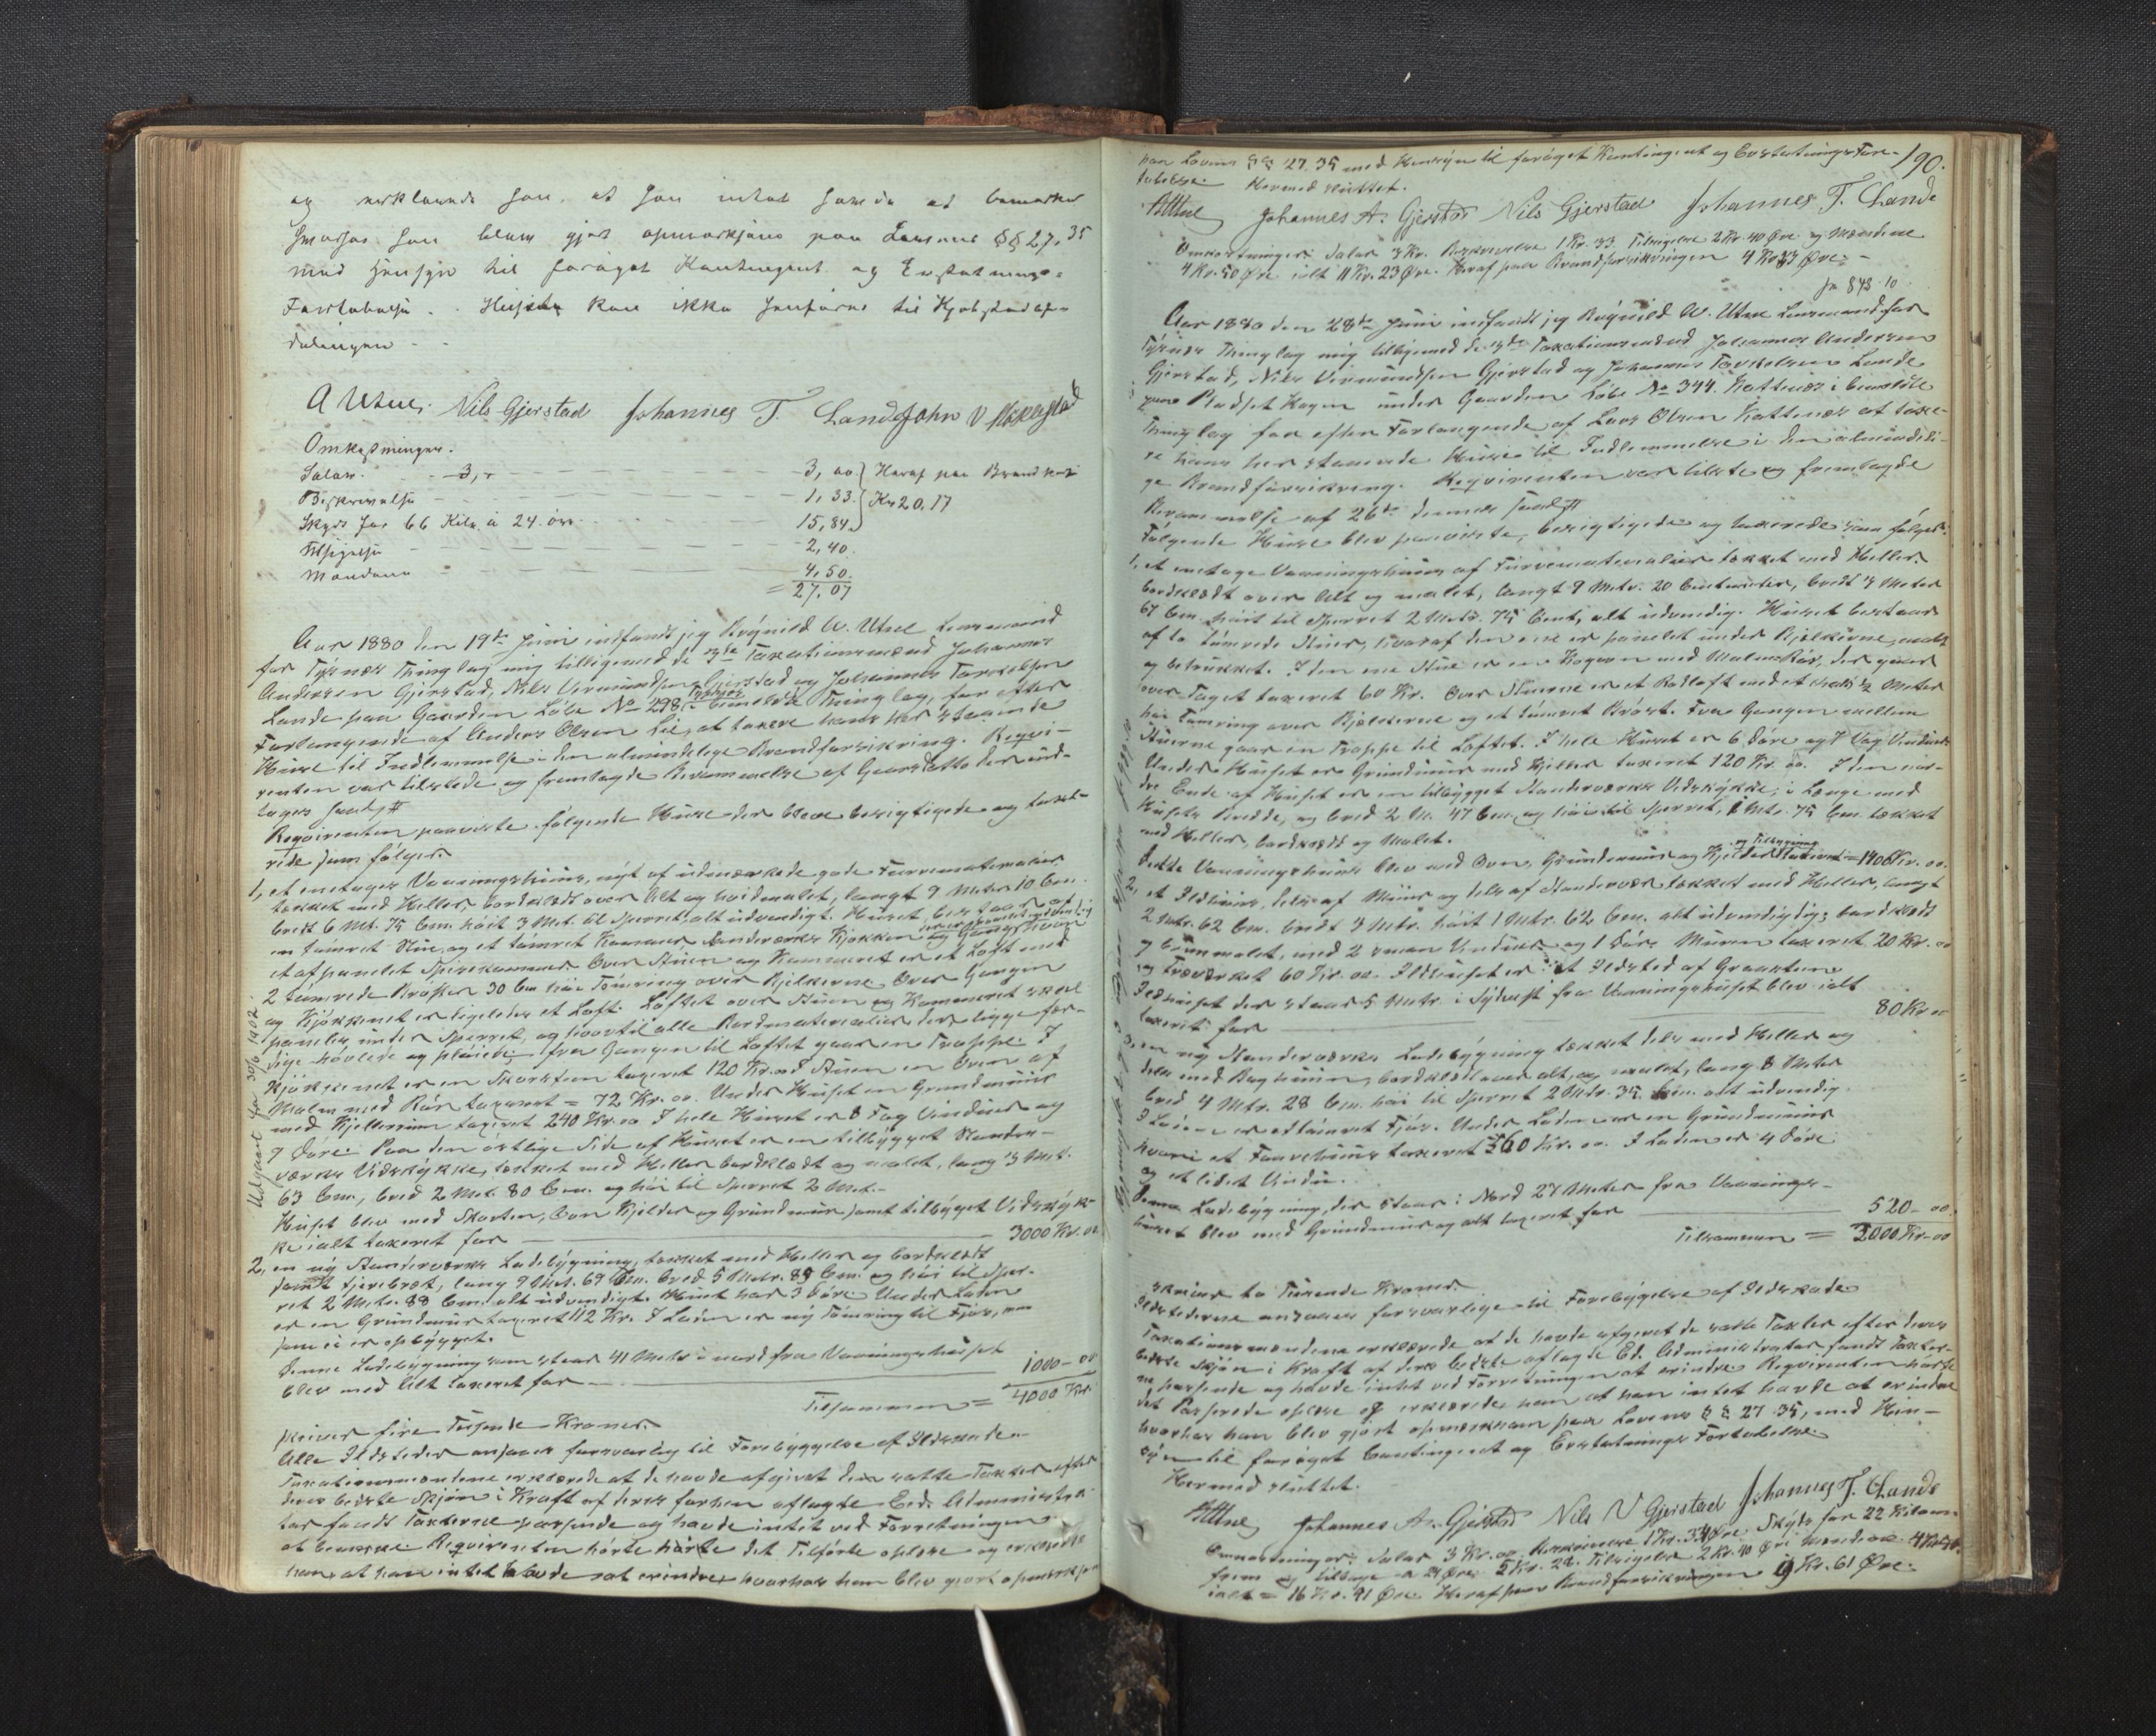 og erklærede han, at han intet havde at bemærke
hvorhos han blev gjort opmærksom paa Lovens §§ 27, 35
med Hensyn til forøget Kontingent og Erstatnings-
Fortabelse. Husene kan ikke henføres til Kjøbstadaf-
delingen
A Utne, Nils Gjerstad Johannes T. Lande John V
Omkostninger.
Salær 3,00 Heraf paa Brandkas
Beskrivelse 1,33 Kr 20,17
Skyds for 66 Kilm. a 24 øre 15,84
Tilsigelse 2,40
Mændene 4,50
= 27,07
Aar 1880 den 19de Juni indfandt jeg Brynild A. Utne Lensmand
for Tysnæs Thinglag mig tilligemed de 3de Taxationsmænd Johannes
Andersen Gjerstad, Nils Virmundsen Gjerstad og Johannes Torkelsen
Lande paa Gaarden Løbe No 298 i bemeldte Thinglag, for efter
Forlangende af Anders Olsen Lie, at taxere hans her staaende
Huse til Indlemmelse i den almindelige Brandforsikring. Reqvi-
renten var tilstede og fremlagde Berammelse af Gaarsdatto der ind-
tages saalt.
Reqvirenten paaviste følgende Huse der bleve besigtigede og taxe-
rede som følger.
1, et enetages Vaaningshuus, nyt af udmærkede gode Furrematerialier
tækket med Heller, bordklædt over Alt og hvidmalet, langt 9 Meter 10 Cm.
bredt 6 Mt. 75 Cm. høit 3 Met. til Sperret, alt udvendigt. Huset bestaar af
en tømret Stue, og et tømret Kammer Standværks Kjøkken og Gang
et afpanelet Spisekammer. Over Stuen og Kammeret er et Loft med
2 tømrede Brøster 30 Cm høi Tømring over Bjelkerne. Over Gangen
og Kjøkkenet er ligeledes et Loft. Loftet over Stuen og Kammeret skal
paneles under Sperret, og hvortil alle Bordmaterialier der ligge fær-
dige høvlede og pløiede. fra Gangen til Loftet gaar en Trappe. I
Kjøkkenet er en Skorsten taxeret 120 Kr. og Stuen en Ovn af
Malm med Rør taxeret = 72 Kr. oo. Under Huset en Grundmuur
med Kjellerrum taxeret 240 Kr. oo I hele Huset er 8 Fag Vinduer og
9 Døre. Paa den østlige Side af Huset er en tilbygget Stander-
værks Vidskykke, tækket med Heller bordklædt og malet, lang 3 Met.
63 Cm., bred 2 Met. 80 Cm. og høi til Sperret 2 Met.
Huset blev med Skorsten, Ovn Kjelder og Grundmur samt tilbygget Vidskyk-
ke ialt taxeret for 3000 Kr. oo
2, en ny Standværks Ladebygning, tækket med Heller og bordklædt
samt tjærebræt, lang 9 Met. 69 Cm. bred 5 Metr. 89 Cm. og høi til Sper-
ret 2 Metr. 88 Cm. alt udvendigt. Huset har 3 Døre Under Laden
er en Grundmur taxeret 112 Kr. I Laden er ny Tømring til Fjøs,
som ei er opbygget.
Denne Ladebygning som staar 41 Metr i nord fra Vaaningshuset
blev med Alt taxeret for 1000 - oo
Tilsammen = 4000 Kr.
skriver fire Tusende Kroner.
Alle Ildsteder ansaaes forsvarlig til Forebyggelse af Ildskade.
Taxationsmændene erklærede at de havde afgivet den satte Taxter efter
deres bedste Skjøn i Kraft af deres forhen aflagte Ed. Administra-
tor fandt Taxterne passende og havde intet ved Forretningen
at bemærke Reqvirenten hørte det Tilførte oplæse og erklærede
han, at han intet havde at erindre, hvorhos han blev gjort opmærksom
Udgaaet 30/6 1902.
190.
paa Lovens §§ 27, 35 med Hensyn til forøget Kontingent og Erstatnings For-
tabelse. Hermed sluttet.
AUtne Johannes A. Gjerstad Nils Gjerstad Johannes T. Lande
Omkostninger Salær 3 Kr. Beskrivelse 1 Kr. 33. Tilsigelse 2 Kr. 40 Øre og Mændene
4 Kr. 50 Øre ialt 11 Kr. 23 Øre. Heraf paa Brandforsikringen 4 Kr 33 Øre.
Aar 1880 den 28de Juni indfandt jeg Brynild A. Utne Lensmand for
Tysnæs Thinglag mig tilligemed de 3de Taxationsmænd Johannes Andersen
Gjerstad, Nils Virmundsen Gjerstad og Johannes Torkelsen Lande
paa Pladset Hagen under Gaarden Løbe No 344. Hattenæs i bemeldte
Thinglag for efter Forlangende af Lars Olsen Hattenæs at taxe-
re hans her staaende Huse til Indlemmelse i den almindeli-
ge Brandforsikring. Reqvirenten var tilstede og fremlagde
Berammelse af 26de dennes saal.
Følgende Huse blev paaviste, besigtigede og taxerede som følger.
1, et enetage Vaaningshuus af Furrematerialier tækket med Heller,
bordklædt over Alt og malet, langt 9 Metr. 20 Centimeter, bredt 4 Meter
67 Cm. høit til Sperret 2 Metr. 75 Cent, alt udvendig. Huset bestaar
af to tømrede Stuer, hvoraf den ene er panelet under Bjelkerne, malet
og betrukket. I den ene Stue er en Kogeovn med Malm Rør, der gaar
over Taget taxeret 60 Kr. Over Stuerne er et Rodloft med et halv 1/2 Meter
høi Tømring over Bjælkerne og et tømret Brøst. Fra Gangen mellem
Stuerne gaar en Trappe til Loftet. I hele Huset er 6 Døre og 7 Fag Vinduer
Under Huset er Grundmur med Kjelder taxeret 120 Kr. oo. I den nor-
dre Ende af Huset er en tilbygget Standværks Vedskykke, i Længe med
Husets Bredde, og bred 2 M. 47 Cm. og høi til Sperret, 1 Met. 75 Cm. tækket
med Heller, bordklædt og Malet.
og Tilbygning
Dette Vaaningshuus blev med Ovn, Grundmur og Kjelder taxeret = 1400 Kr. oo.
2, et Ildhuus, dels af Muur og dels af Standvær tækket med Heller, langt
2 Metr. 62 Cm. bredt 3 Metr. høit 1 Metr. 62 Cm. alt udvendigdig; bordklædt
og brunmalet, med 2 smaa Vinduer og 1 Dør. Muren taxeret 20 Kr. oo
og Træværket 60 Kr. oo. Ildhuset er et Ildsted af Graasteen
Ildhuset der staar 5 Metr. i Sydvest fra Vaaningshuset blev ialt
taxeret for 80 Kr oo
3, en ny Standerværks Ladebygning tækket dels med Heller og
dels med Baghuun, bordklædt over alt, og malet, lang 8 Meter
bred 4 Metr. 28 Cm. høi til Sperret 2 Metr. 35 Cm. alt udvendig.
I Laden er et tømret Fjøs. Under Laden er en Grundmuur
hvori et Faarehuus taxeret 360 Kr. oo. I Laden er 4 Døre
og et lidet Vindu.
Denne Ladebygning, der staar i Nord 27 Meter fra Vaanings-
huset blev med Grundmur og alt taxeret for 520 - oo.
Tilsammen = 2000 Kr - oo
skriver to Tusende Kroner.
Ildstederne ansaaes forsvarlige til Forebygelse af Ildskade
Taxationsmændene erklærede at de havde afgivet de satte Taxter efter deres
bedste Skjøn i Kraft af deres aflagte Ed. Administrator fandt Taxter-
ne passende og havde intet ved Forretningen at erindre Reqvirenten hørte
det Passerede oplæse og erklærede han at han intet havde at erindre
hvorhos han blev gjort opmærksom paa Lovens §§ 27 35, med Hen-
syn til forøget Contingent og Erstatnings Fortabelse.
Hermed sluttet.
AUtne, Johannes A. Gjerstad Nils V Gjerstad Johannes T. Lande
Omkostninger: Salær 3 Kr. oo. Beskrivelse 1 Kr. 33 Øre Skyds for 22 Kilom.
frem og tilbage a 24 Øre 5 Kr. 28. Tilsigelse 2 Kr. 40 Øre Mændene 4 Kr 50.
ialt = 16 Kr. 41 Øre Heraf paa Brandforsikringen 9 Kr. 61 Øre.